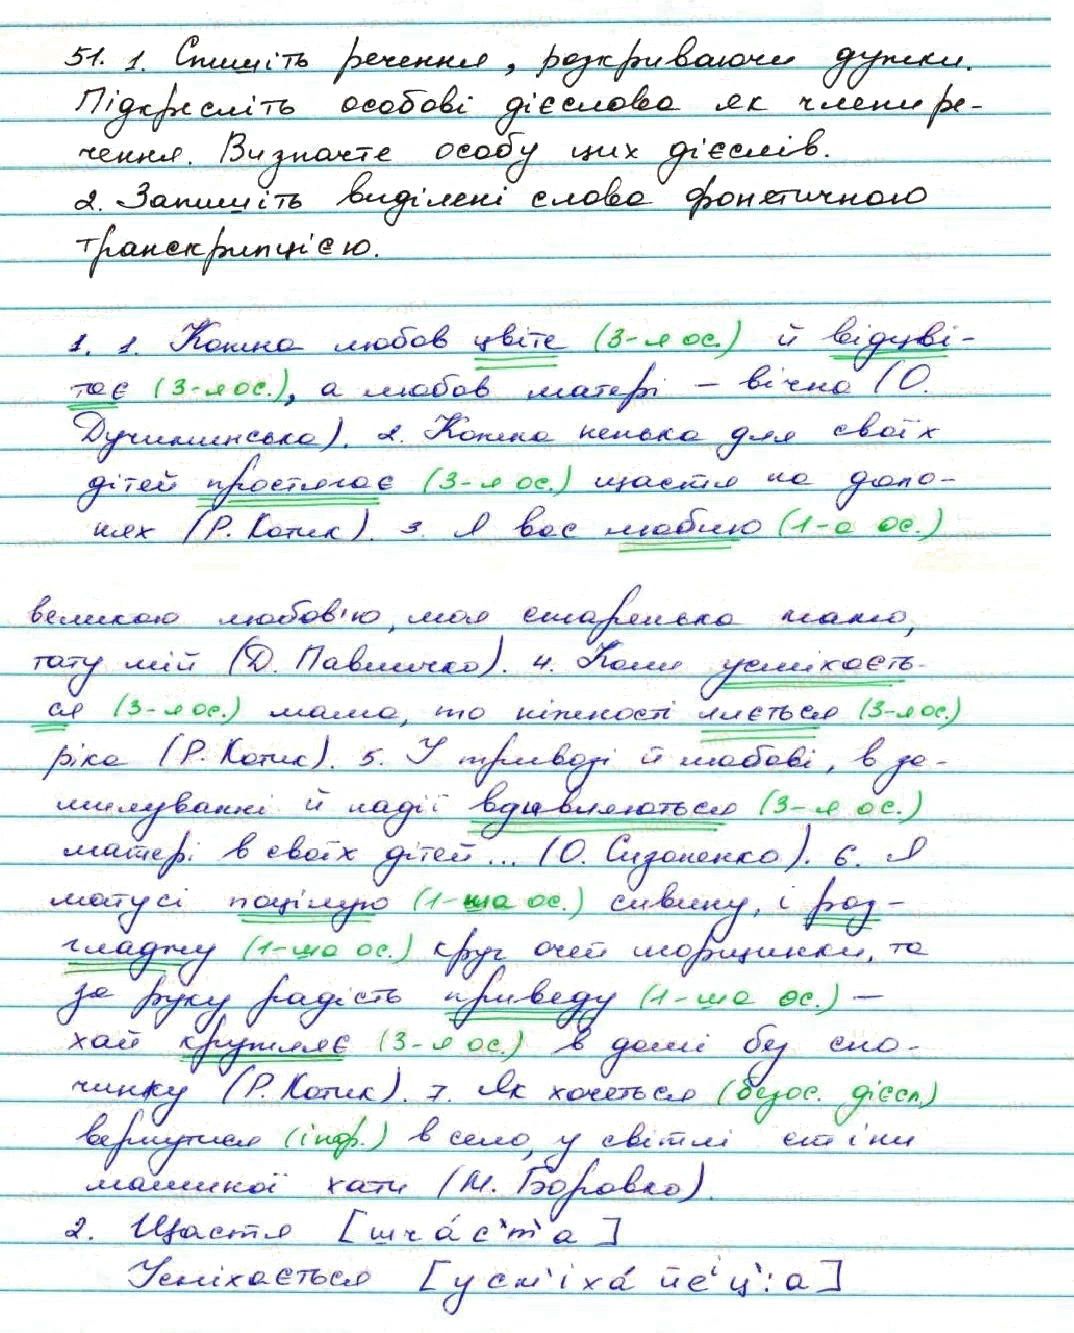 51. 1. Спишіть речення, розкриваючи дужки.
Підкресліть особові дієслова як члени ре-
чення. Визначте особу цих дієслів.
2. Запишіть виділені слова фонетичною
транскрипцією.
1. 1. Кожна любов цвіте (3-я ос.) й відцві-
тає (3-я ос.), а любов матері – вічна (О.
Дучиминська). 2. Кожна ненька для своїх
дітей простягає (3-я ос.) щастя на доло-
нях (Р. Котик). 3. Я вас люблю (1-а ос.)
великою любов'ю, моя старенька мамо,
тату мій (Д. Павличко). 4. Коли усміхаєть-
ся (3-я ос.) мама, то ніжності ллється (3-я ос.)
ріка (Р. Котик). 5. У тривозі й любові, в за-
милуванні й надії вдивляються (3-я ос.)
матері в своїх дітей... (О. Сизоненко). 6. Я
матусі поцілую (1-ша ос.) сивину, і роз-
гладжу (1-ша ос.) круг очей морщинки, та
за руку радість приведу (1-ша ос.) –
хай кружляє (3-я ос.) в домі без спо-
чинку (Р. Котик). 7. Як хочеться (безос. дієсл.)
вернутися (інф.) в село, у світлі стіни
маминої хати (М. Боровко).
2. Щастя [шча́с'т'а]
Усміхається [усм'іха́йец':а]